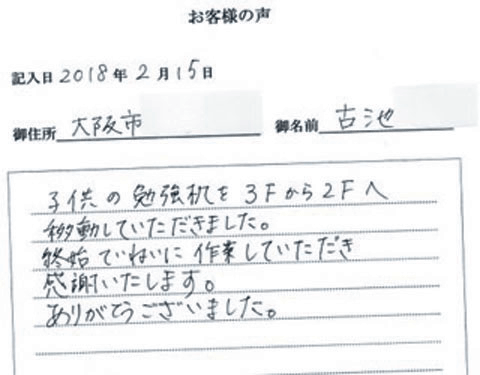 お客様の声
記入日 2018年2月15日
御住所 大阪市 御名前 古池
子供の勉強机を3Fから2Fへ
移動していただきました。
終始ていねいに作業していただき
感謝いたします。
ありがとうございました。